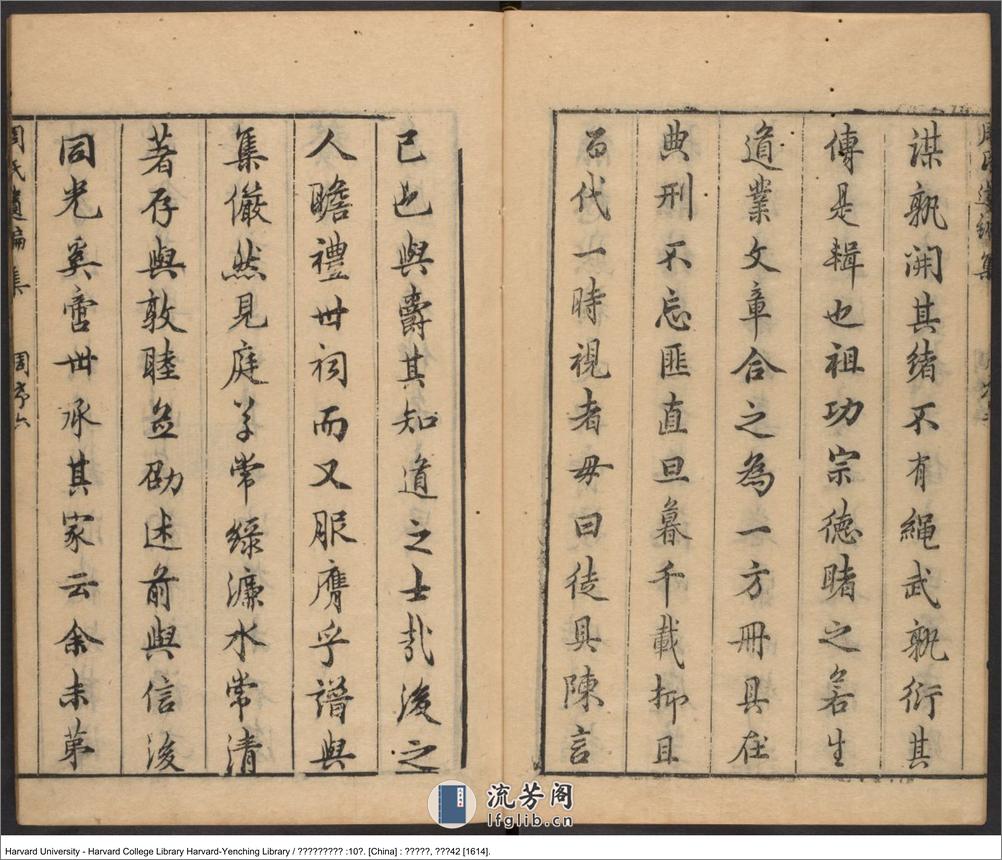 謀孰開其緒不有繩武孰衍其
傳是輯也祖功宗德睹之若生
道業文章合之為一方冊具在
典刑不忘匪直旦暮千載抑且
百代一時視者毋曰徒具陳言
已也與爵其知道之士哉後之
人瞻禮世祠而又服膺乎譜與
集儼然見庭草常綠濂水常清
著存與敦睦並劭述前與信後
同光奚啻世承其家云余未第
周氏遺編集 周序六
流芳阁
lfglib.cn
Harvard University - Harvard College Library Harvard-Yenching Library / ????????? :10?. [China] : ?????, ???42 [1614].